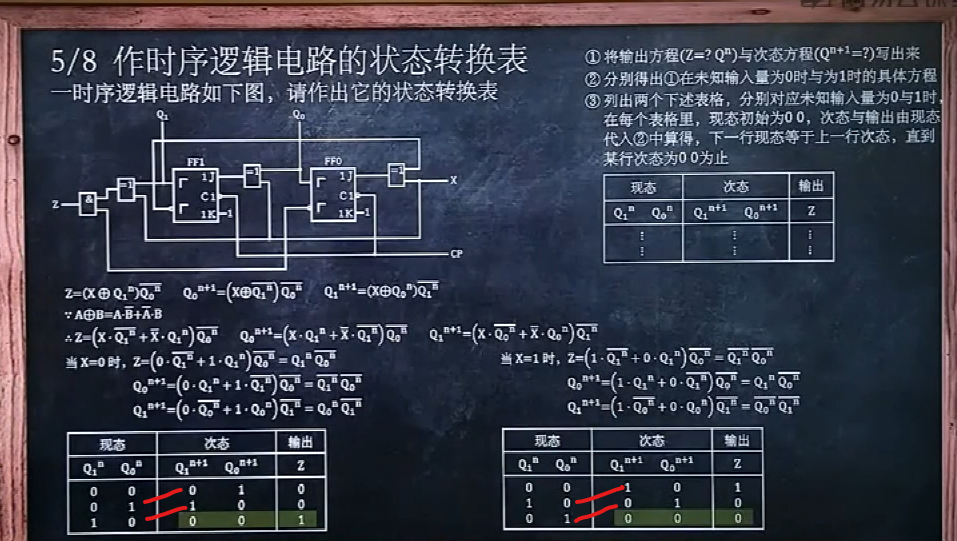 5/8 作时序逻辑电路的状态转换表
一时序逻辑电路如下图，请作出它的状态转换表
① 将输出方程(Z=? Qⁿ)与次态方程(Qⁿ⁺¹=?)写出来
② 分别得出①在未知输入量为0时与为1时的具体方程
③ 列出两个下述表格，分别对应未知输入量为0与1时，
在每个表格里，现态初始为0 0，次态与输出由现态
代入②中算得，下一行现态等于上一行次态，直到
某行次态为0 0为止
现态 次态 输出
Q₁ⁿ Q₀ⁿ Q₁ⁿ⁺¹ Q₀ⁿ⁺¹ Z
⋮ ⋮ ⋮
⋮ ⋮ ⋮
Q₁ Q₀
FF1 FF0
1J =1 1J =1 X
Z & =1 C1 C1
1K 1 1K 1
CP
Z=(X⊕Q₁ⁿ)Q̅₀ⁿ Q₀ⁿ⁺¹=(X⊕Q̅₁ⁿ)Q̅₀ⁿ Q₁ⁿ⁺¹=(X⊕Q₀ⁿ)Q̅₁ⁿ
∵A⊕B=A·B̅+A̅·B
∴Z=(X·Q̅₁ⁿ+X̅·Q₁ⁿ)Q̅₀ⁿ Q₀ⁿ⁺¹=(X·Q₁ⁿ+X̅·Q̅₁ⁿ)Q̅₀ⁿ Q₁ⁿ⁺¹=(X·Q̅₀ⁿ+X̅·Q₀ⁿ)Q̅₁ⁿ
当X=0时，Z=(0·Q̅₁ⁿ+1·Q₁ⁿ)Q̅₀ⁿ=Q₁ⁿQ̅₀ⁿ
Q₀ⁿ⁺¹=(0·Q₁ⁿ+1·Q̅₁ⁿ)Q̅₀ⁿ=Q̅₁ⁿQ̅₀ⁿ
Q₁ⁿ⁺¹=(0·Q̅₀ⁿ+1·Q₀ⁿ)Q̅₁ⁿ=Q₀ⁿQ̅₁ⁿ
当X=1时，Z=(1·Q̅₁ⁿ+0·Q₁ⁿ)Q̅₀ⁿ=Q̅₁ⁿQ̅₀ⁿ
Q₀ⁿ⁺¹=(1·Q₁ⁿ+0·Q̅₁ⁿ)Q̅₀ⁿ=Q₁ⁿQ̅₀ⁿ
Q₁ⁿ⁺¹=(1·Q̅₀ⁿ+0·Q₀ⁿ)Q̅₁ⁿ=Q̅₀ⁿQ̅₁ⁿ
现态 次态 输出
Q₁ⁿ Q₀ⁿ Q₁ⁿ⁺¹ Q₀ⁿ⁺¹ Z
0 0 0 1 0
0 1 1 0 0
1 0 0 0 1
现态 次态 输出
Q₁ⁿ Q₀ⁿ Q₁ⁿ⁺¹ Q₀ⁿ⁺¹ Z
0 0 1 0 1
1 0 0 1 0
0 1 0 0 0